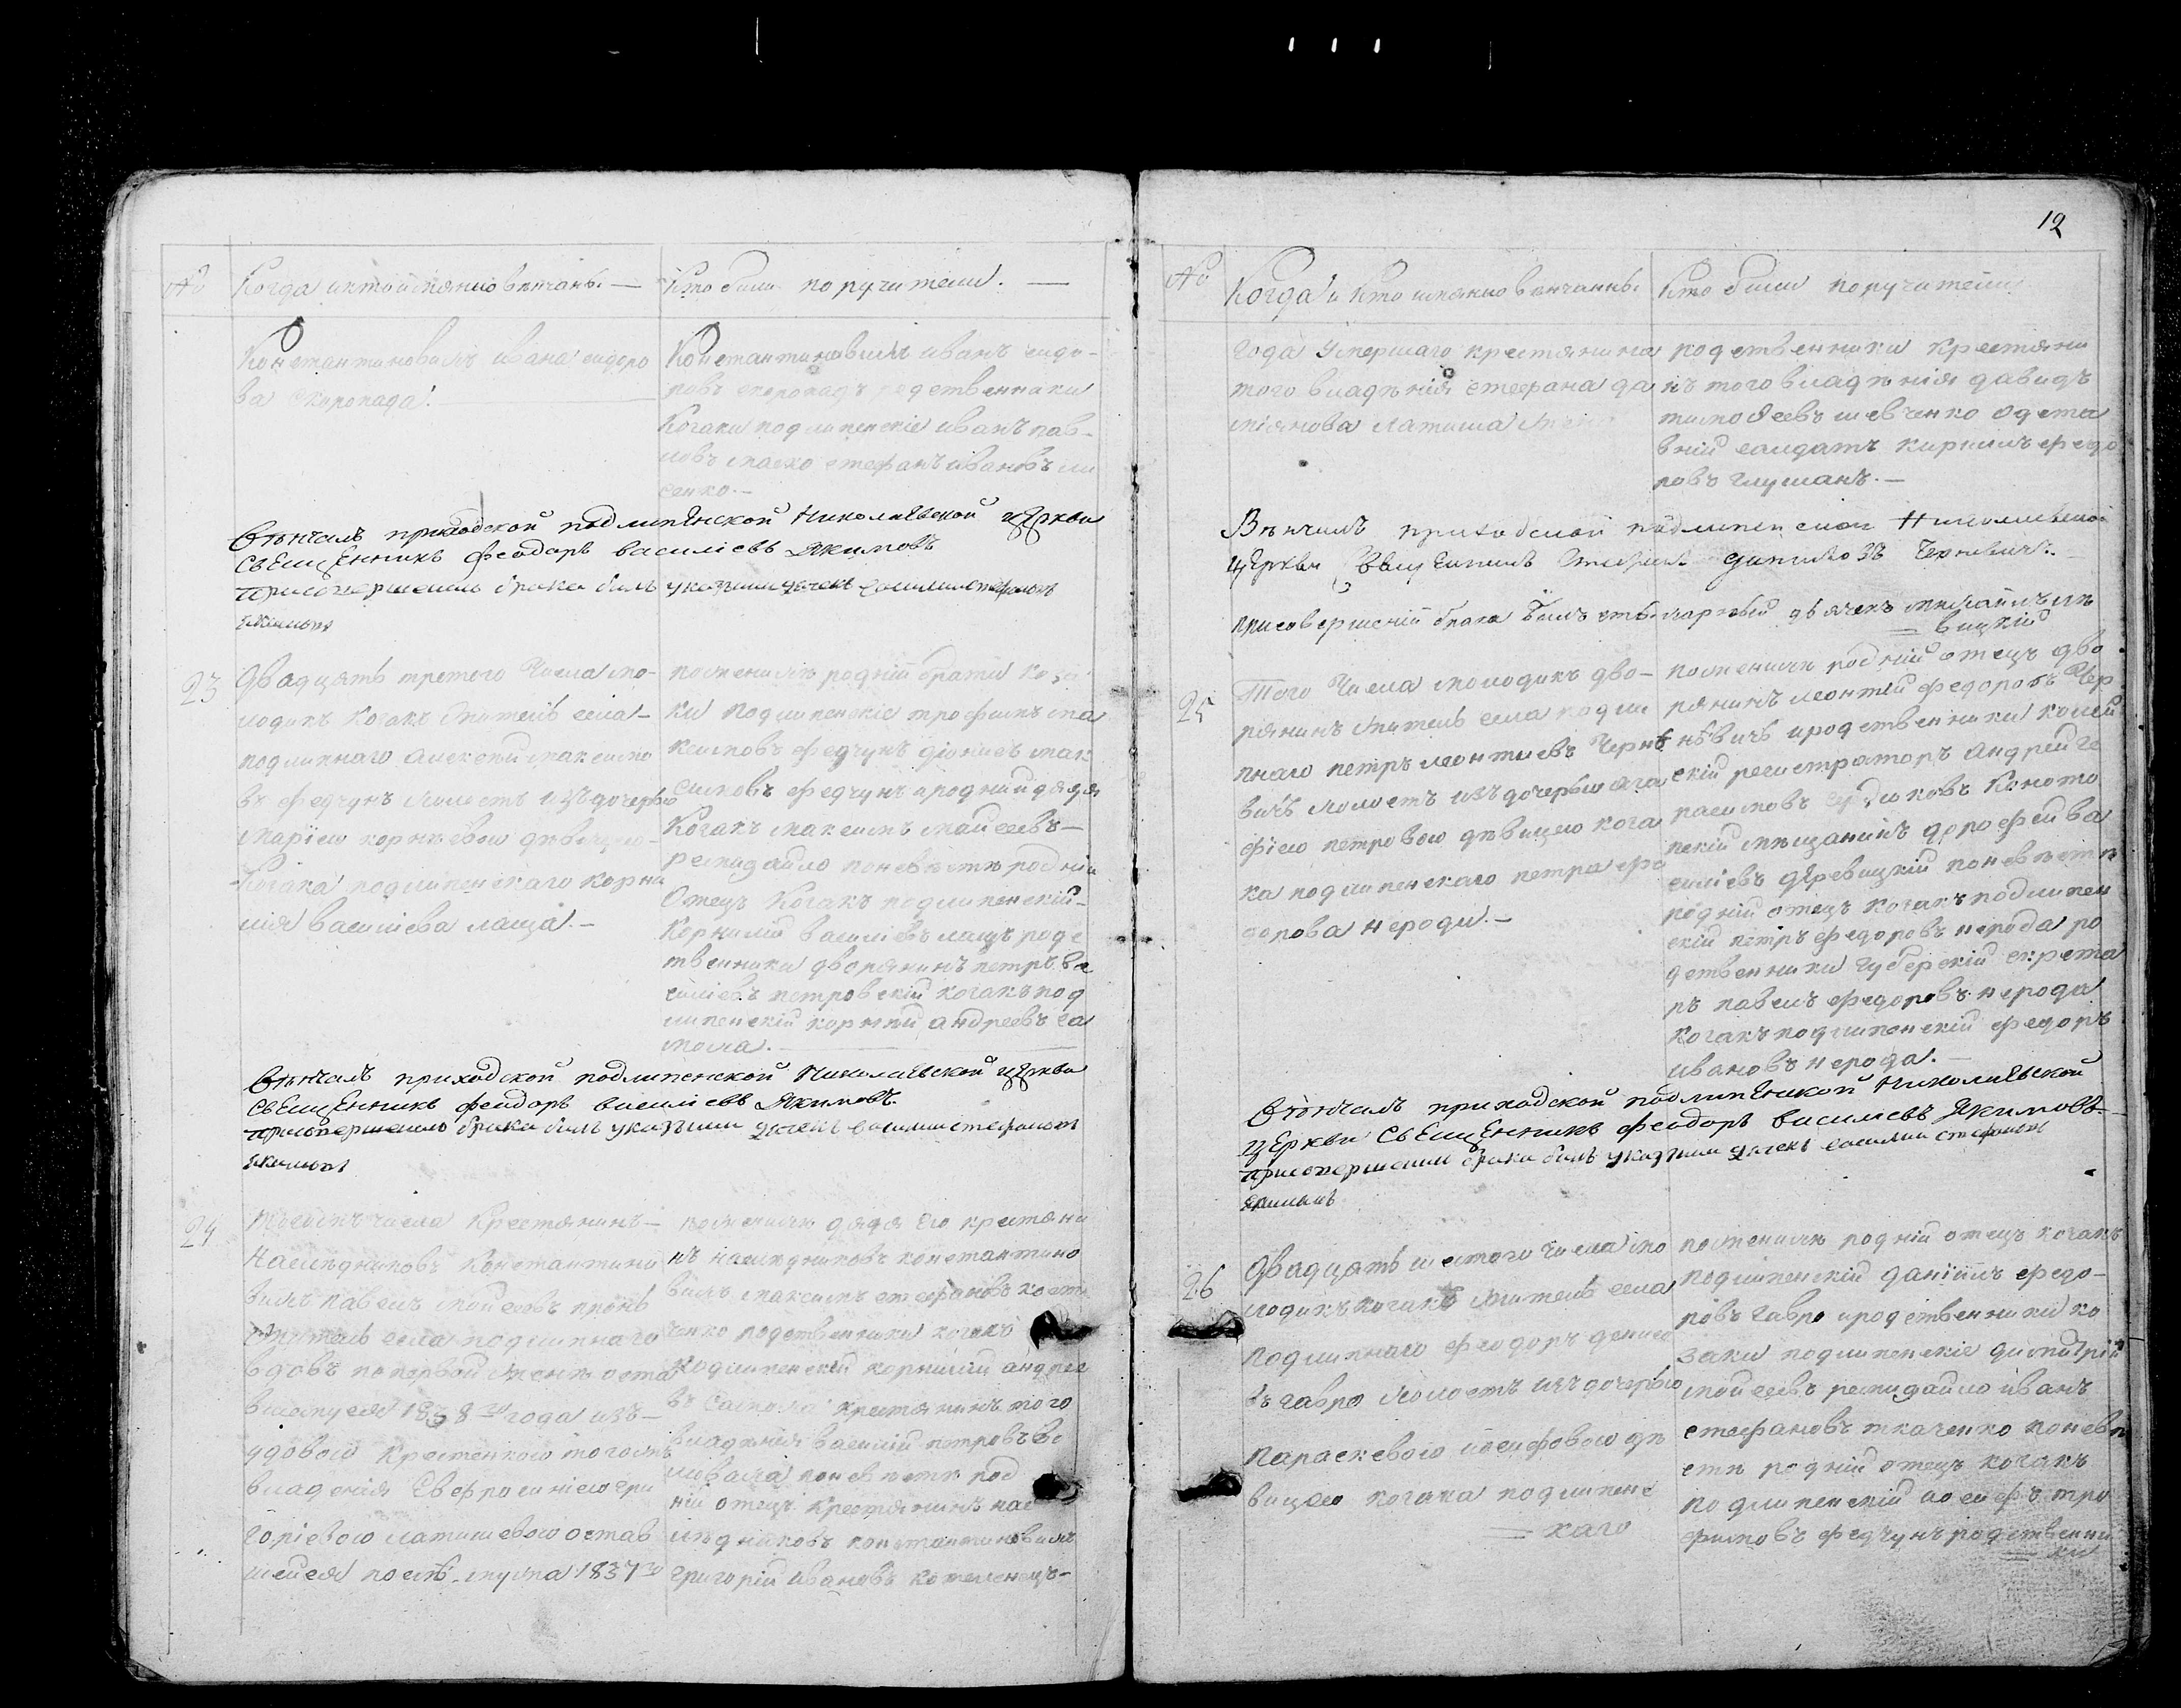 №
Когда и кто именно венчаны. —
Кто были поручители. —
Константиновимъ ивана сидоро
ва скоропада. —
Константиновимъ иванъ сидо-
ровъ скоропадъ родственники
Козаки подлипенскіе иванъ пав-
ловъ маско стефанъ ивановъ ли
сенко. —
Вѣнчалъ приходской подлипЕнской николаЕвской цЕркви
СвЕщЕнникъ феодоръ василіевъ Якимовъ
присовершеніи брака былъ указный дячекъ василий стефановъ
Якимовъ
23
Двадцять третого числа мо-
лодикъ козакъ житель села —
подлипнаго алексѣй максимо
въ федчунъ поместъ изъ дочерью
маріею корнѣевою дѣвицею —
Козака подлипенскаго корни
лія василіева лаща. —
поженихѣ родній брати коза
ки подлипенскіе трофимъ ма
ксимовъ федчунъ діонисъ мак
симовъ федчунъ и родний дядя
Козакъ максимъ мойсеевъ —
ремидайло поневѣстѣ родній
Отецъ Козакъ подлипенскій —
Корнилій василіевъ лащъ родс
твенники дворянинъ петръ ва
силіевъ петровскій козакъ под
липенскій корнѣй андреевъ са
мола. —
Вѣнчалъ приходской подлипенской николаЕвской цЕркви
СвЕщЕнникъ феодоръ василіевъ Якимовъ.
присовершеніи брака былъ указный дячекъ василий стефановъ
Якимовъ
24
числа Крестянинъ —
наслѣдниковъ Константино
вимъ павелъ мойсеевъ
житель села подлипнаго
вдовъ по первой женѣ оста
вшемуся 1838го года изъ —
удовою Крестянкою тогожъ
владенія Евфросиніею гри
горіевою латишевою остав
шейся послѣ мужа 1837го
поженихѣ дядя Его крестяни
нъ наслѣдниковъ константино
вимъ максимъ стефановъ кост
ченко родственники козакъ
подлипенскій корнилій андрее
въ самола крестянинъ того
владѣнія василій петровъ
поневѣстѣ род
ній отецъ крестянинъ нас
лѣдниковъ константиновимъ
григорій ивановъ котеленецъ —
12
№
Когда и кто именно венчанны.
Кто были поручители
года умершаго крестянина
того владѣнія стефана да
міянова латиша
родственники крестяни
нъ того владѣнія давидъ
тимофеевъ шевченко одста
вній салдатъ кирилъ федо
ровъ глушанъ. —
Вѣнчалъ приходской подлипенской Николаевской
цЕркви Стефанъ Черневичъ.
присовершеній брака былъ дьячекъ михаилъ ле
= вицкій
25
Того числа молодикъ дво-
рянинъ житель села подли
пнаго петръ леонтиевъ Чернѣ
вичъ поместъ изъ дочерью ага
фіею петровою дѣвицею коза
ка подлипенскаго петра фео
дорова нероди. —
поженихѣ родній отецъ дво
рянинъ леонтий федоровъ Чер
нѣвичъ и родственники колеж
скій регистраторъ андрей ге
расимовъ Кононто
пскій мещанинъ дорофей ва
силіевъ дЕревицкій поневѣстѣ
родній отецъ козакъ подлипен
скій петръ федоровъ нерода ро
дственники губерскій скрета
ръ павелъ федоровъ нерода
козакъ подлипенскій федоръ
ивановъ нерода. —
Вѣнчалъ приходской подлипЕнской николаЕвской
цЕркви СвЕщЕнникъ феодоръ василіевъ Якимовъ
присовершеніи брака былъ указный дячекъ василий стефановъ
Якимовъ
26
Двадцять шестого числа мо
лодикъ козакъ житель села
подлипнаго феодоръ денисо
въ гавро поместъ изъ дочерью
параскевою іосифовою дѣ
вицею козака подлипенс
= каго
поженихѣ родній отецъ козакъ
подлипенскій даніилъ федо-
ровъ гавро и родственники ко
заки подлипенскіе димитрій
мойсеевъ ремидайло иванъ
стефановъ ткаченко поневѣ
стѣ родній отецъ козакъ
подлипенскій иосифъ тро
фимовъ федчунъ родственни
= ки